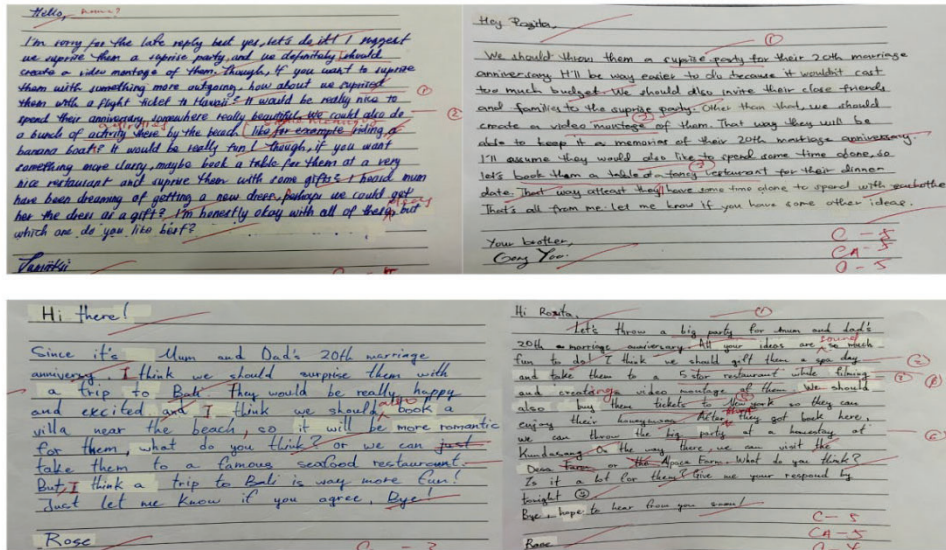 Hello,
I'm sorry for the late reply but yes, let's do it! I suggest
we suprise them a suprise party, and we definitely should
create a video montage of them. Though, if you want to suprise
them with something more outgoing, how about we suprised
them with a flight ticket to Hawaii? It would be really nice to
spend their anniversary somewhere really beautiful. We could also do
a bunch of activity there by the beach, like for example riding a
banana boat? It would be really fun! Though, if you want
something more classy, maybe book a table for them at a very
nice restaurant and suprise them with some gifts. I heard mum
have been dreaming of getting a new dress, perhaps we could get
her the dress as a gift? I'm honestly okay with all of these but
which one do you like best?
Hey Rozita,
①
We should throw them a suprise party for their 20th marriage
anniversary. It'll be way easier to do because it wouldn't cost
too much budget. We should also invite their close friends
and families to the suprise party. Other than that, we should
create a video montage of them. That way they will be
able to keep it a memories of their 20th marriage anniversary.
I'll assume they would also like to spend some time alone, so
let's book them a table at a fancy restaurant for their dinner
date. That way atleast they have some time alone to spend with eachother
That's all from me. let me know if you have some other ideas.
Your brother,
Gong Yoo.
C - 5
CA - 5
O - 5
Hi there!
Since it's Mum and Dad's 20th marriage
anniversy I think we should surprise them with
a trip to Bali. They would be really happy
and excited and I think we should also book a
villa near the beach, so it will be more romantic
for them, what do you think? or we can just
take them to a famous seafood restaurant.
But, I think a trip to Bali is way more fun!
Just let me know if you agree, Bye!
Rose
Hi Rozita,
①
Let's throw a big party for mum and dad's
20th marriage anniversary. All your ideas are sound so much
fun to do! I think we should gift them a spa day
and take them to a 5 star restaurant while filming
and creating a video montage of them. We should
also buy them tickets to New york so they can
enjoy their honeymoon. After they got back here,
we can throw the big party at a homestay at
Kundasang. On the way there, we can visit the
Deer Farm or the Alpaca Farm. What do you think?
Is it a lot for them? Give me your respond by
tonight
Bye, hope to hear from you soon!
Rose
C - 5
CA - 5